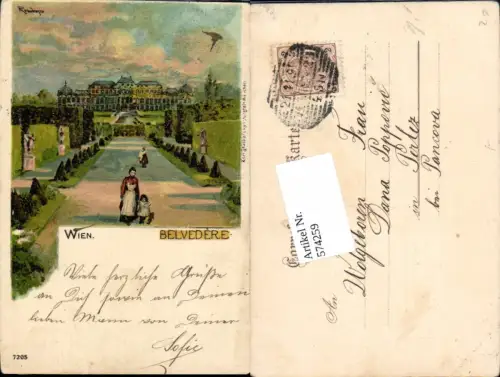 WIEN. BELVEDERE.
Viele herzliche Grüße
an Dich sowie an Deinen
lieben Mann von Deiner
Sofie
7205
Karte
Artikel Nr.
574259
An
Wolgeboren Frau
Dana Popović
in Perlez
bei Pancova